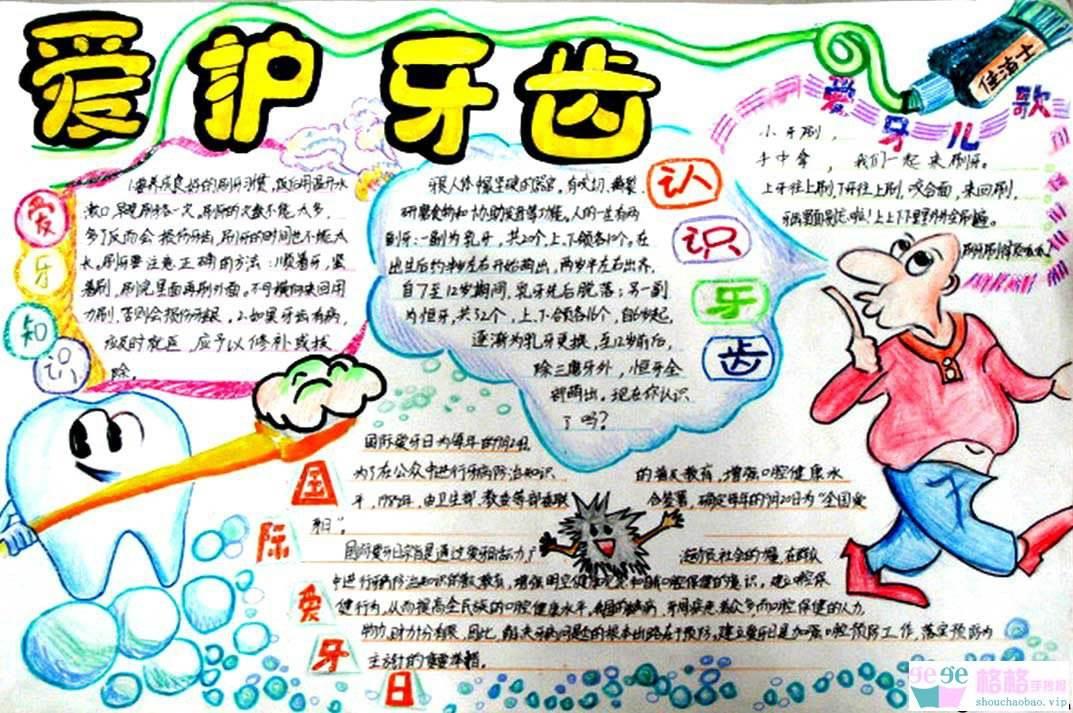 爱护牙齿
佳洁士
爱牙儿歌
小牙刷，
手中拿，我们一起来刷牙。
上牙往上刷，下牙往上刷，咬合面，来回刷，
爱牙知识
1.要养成良好的刷牙习惯，饭后用温开水
漱口，早晚刷牙各一次，刷牙的次数不能太多，
多了反而会损伤牙齿，刷牙的时间也不能太
长。刷牙要注意正确的方法：顺着牙，竖
着刷，刷完里面再刷外面。不可横向来回用
力刷，否则会损伤牙龈。2.如果牙齿有病，
应及时就医，应予以修补或拔
除。
认识牙齿
牙是人体最坚硬的器官，有咬切、撕裂、
研磨食物和协助发音等功能。人的一生有两
副牙：一副为乳牙，共20个，上、下颌各10个。在
出生后约半岁左右开始萌出，两岁半左右出齐。
自7至12岁期间，乳牙先后脱落；另一副
为恒牙，共32个，上、下颌各16个，自6岁起，
逐渐为乳牙更换，至12岁前后，
除三磨牙外，恒牙全
部萌出。现在你认识
了吗？
国际爱牙日
国际爱牙日为每年的9月20日。
为了在公众中进行牙病防治知识的普及教育，增强口腔健康水
平，1989年，由卫生部、教委等部委联合签署，确定每年的9月20日为“全国爱
牙日”。
国际爱牙日宗旨是通过爱牙日活动，
中进行牙病防治知识的普及教育，增强
健行为，从而提高全民族的口腔健康水平。
建立爱牙日是加强口腔预防工作，落实预防为
主方针的重要举措。
gege
格格手抄报
shouchaobao.vip